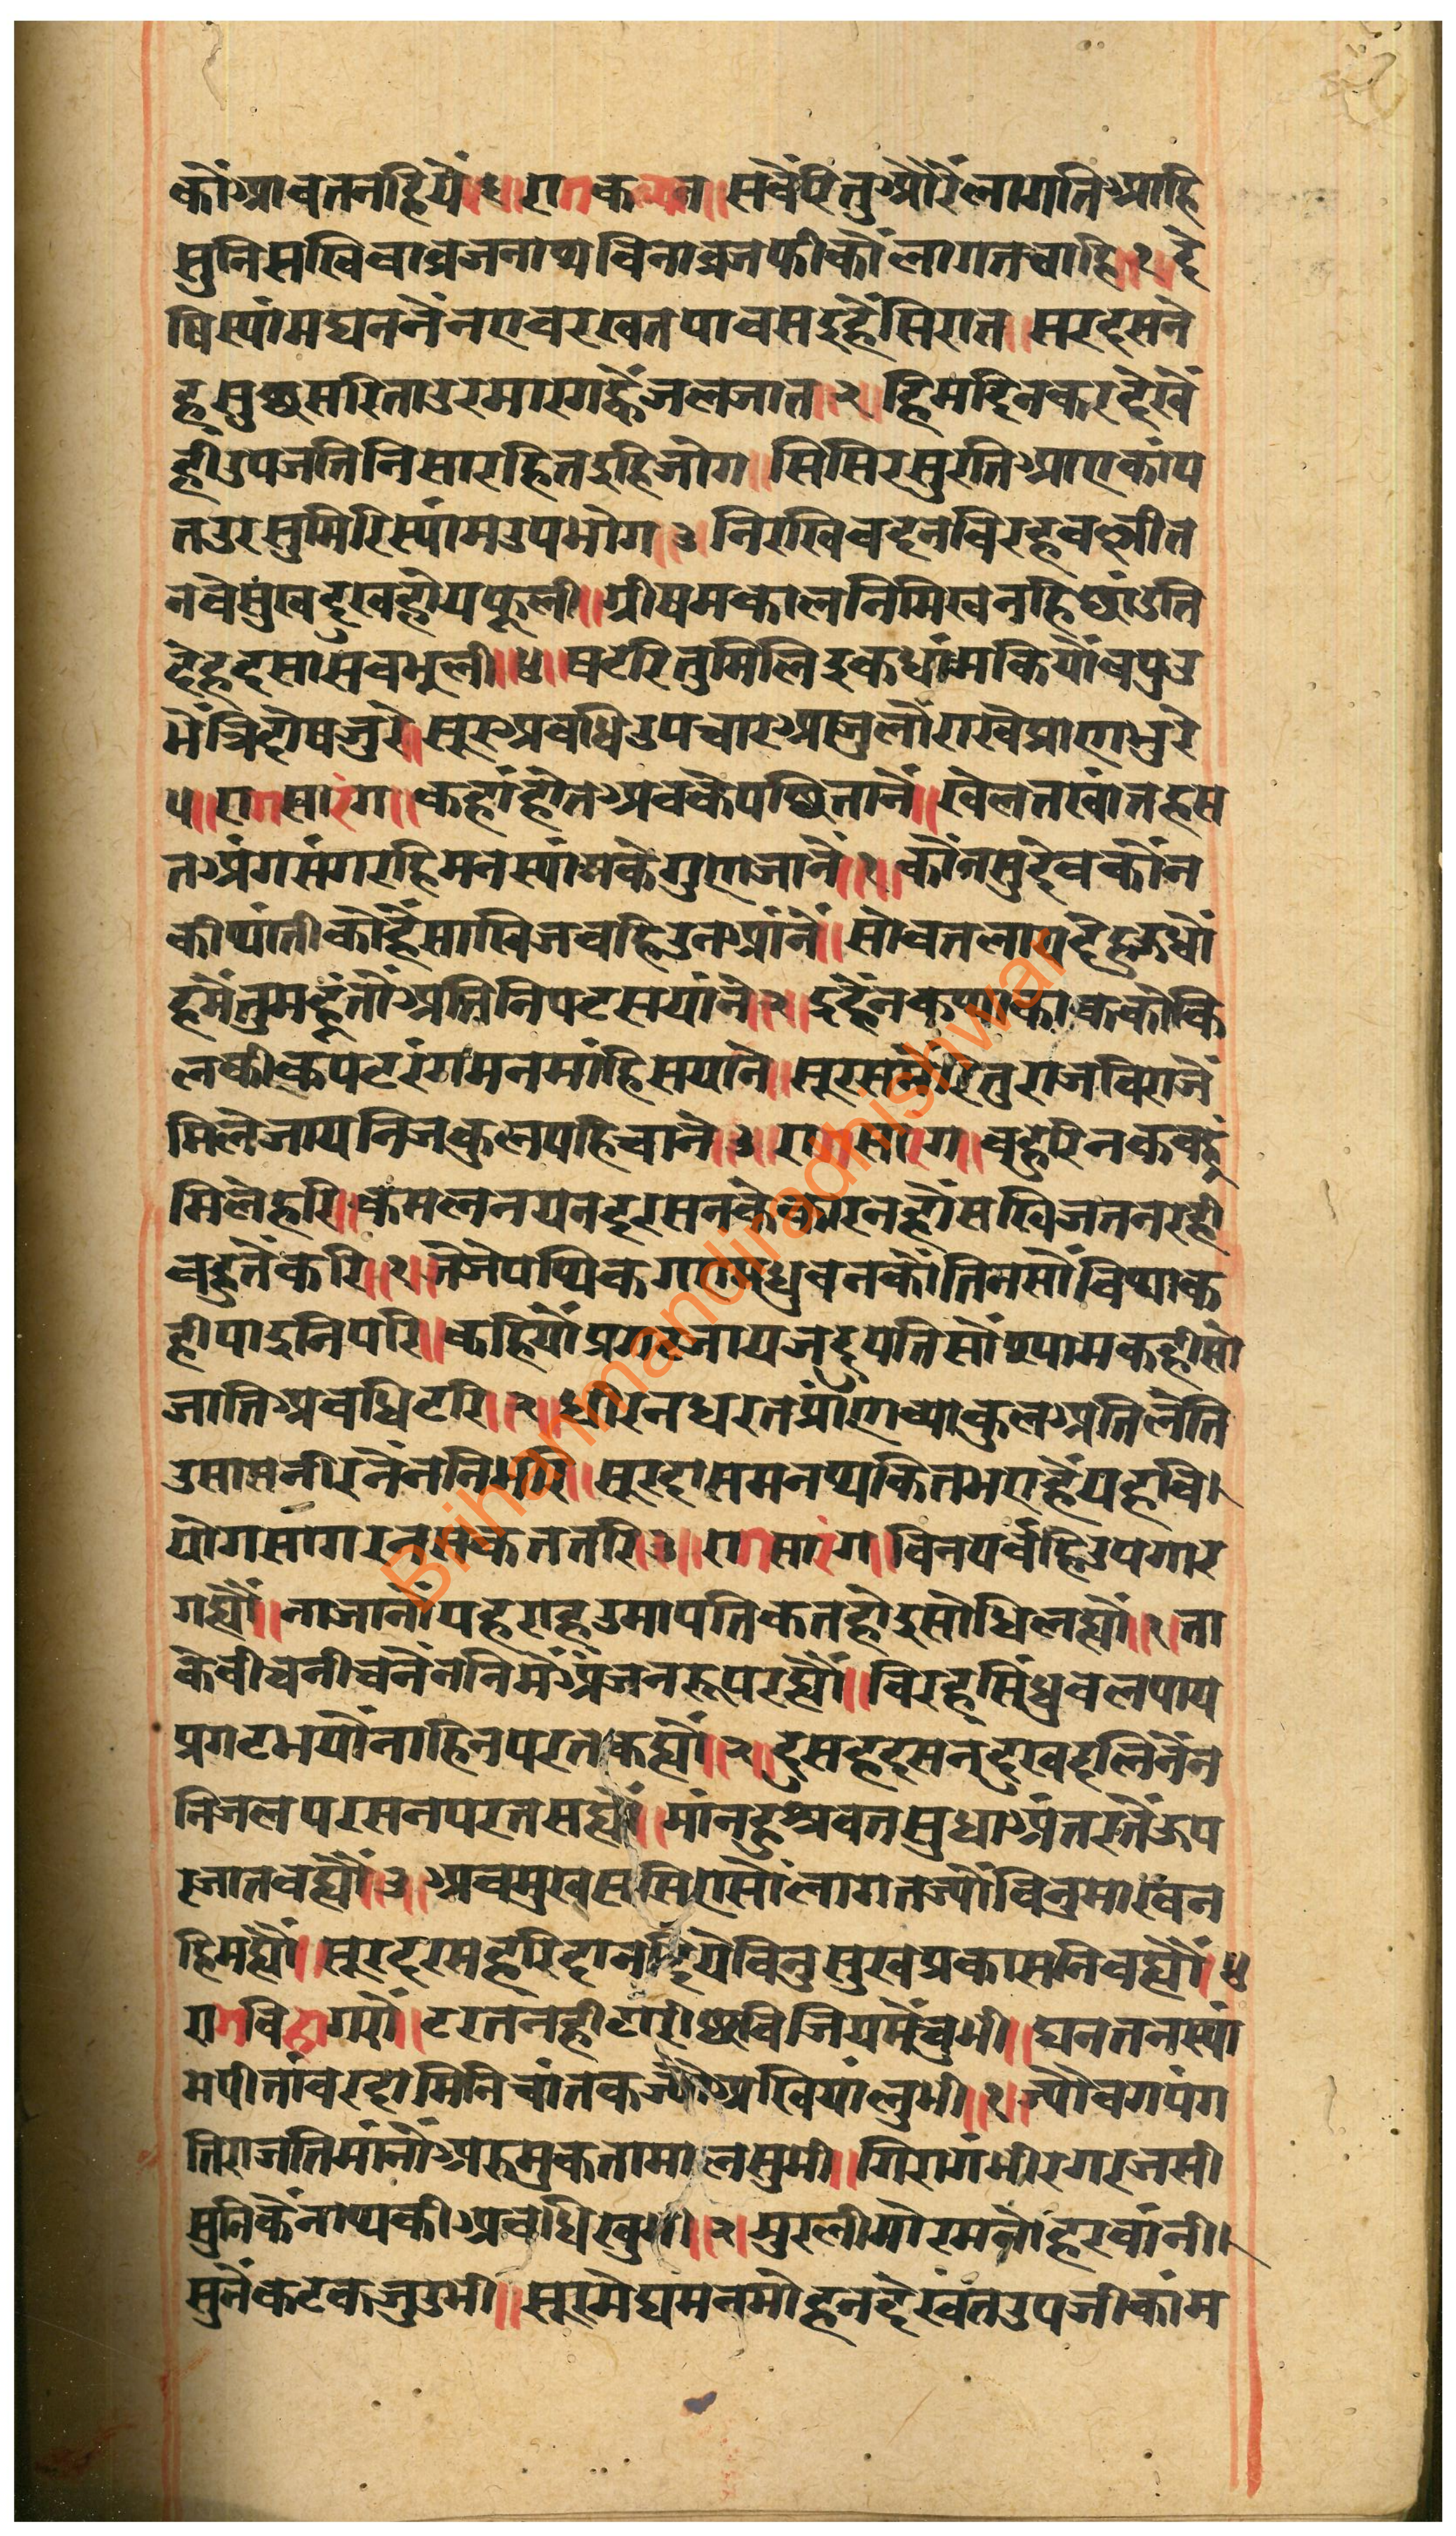 कौंआवतनहियें॥४॥रागकल्यान॥सबैंरितुऔरैंलागतिआहि
सुनिसखिवाव्रजनाथविनाव्रजफीकौंलागतचाहि॥१॥दे
षिस्यांमघननैंनएवरखतपावसइहैंसिरात॥सरदसने
हसुछसरिताउरमारगह्वैंजलजात॥२॥हिमदिनकरदेखें
हीउपजतिनिसारहितइहिजोग॥सिसिरसुरतिआएकांप
तउरसुमिरिस्यांमउपभोग॥३॥निरखिवदनविरहवल्लीत
नवेसुंखदुखहोयफूली॥ग्रीषमकालनिमिखनहिछांडति
देहदसासवभूली॥४॥षटरितुमिलिइकधांमकियौंवपुउ
भेंत्रिदोषजुरे॥सूरअवधिउपचारआजुलौंराखेप्राणभुरे
५॥रागसारंग॥कहांहोतअवकेपछितानें॥खेलतखांतहस
तअंगसंगरहिमनस्यांमकेगुणजानें॥१॥कौंनसुदेवकौंन
कीथांतीकोहैंसाखिजवहिउनआंनें॥सोवतलागदेहऊधौं
हमेंतुमहूंतोंअतिनिपटसयांने॥२॥इहैंनकथाकाककोकि
लकीकपटरंगमनमांहिसयाने॥सूरसमेंरितुराजविराजें
मिलेजायनिजकुलपहिचाने॥३॥रागसारंग॥वहुरिनकवहूं
मिलेहरि॥कमलनयनदरसनकेकारनहोंसखिजतनरही
वहुतेंकरि॥१॥जेजेपथिकगएमधुवनकोंतिनसोंविथाक
हीपाइनिपरि॥कहियौंप्रगटजायजदुपतिसोंश्यामकहीसो
जातिअवधिटरि॥२॥धीरनधरतप्रांणव्याकुलअतिलेति
उसासनीरनेंननिभरि॥सूरदासमनथकितभएहैंयहवि।
योगसागरनसकततरि॥३॥रागसारंग॥विनपर्वहिउपगार
गह्यौं॥नाजानोंयहराहउमापतिकेतहोइसोधिलह्यौं॥१॥ता
केवीचनीचनेंननिमेंअंजनरूपरह्यौं॥विरहसिंधुवलपाय
प्रगटभयौंनाहिनपरतकह्यौं॥२॥दुसहदसनदुखदलिनेंन
निजलपरसनपरतसह्यौं॥मांनहुश्रवतसुधाअंतरतेंऊप
रजातवह्यौं॥३॥अवमुखससिएसोंलागतज्यौंविनुमाखन
हिमह्यौं॥सूरदरसहरिदानदियेविनुसुखप्रकासनिवह्यौं॥४
रागविहागरौं॥टरतनहीटारीछविजियमेंचुभी॥घनतनस्यां
मपीतांवरदामिनिचांतकज्यौंअखियांलुभी॥१॥ज्यौवगपंग
तिराजतिमांनौंअरुमुकतामालसुभी॥गिरागंभीरगरजसी
सुनिकेंनाथकीश्रवधिखुभी॥२॥मुरलीमोरमनोंहरवांनी।
सुनेंकटकजुउभी॥सूरमेघमनमोहनदेखतउपजीकांम